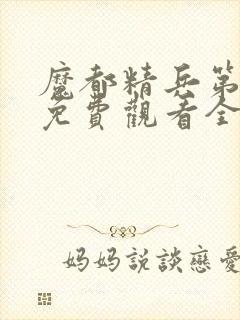 魔都精兵第
免費觀看全
妈妈説談戀愛